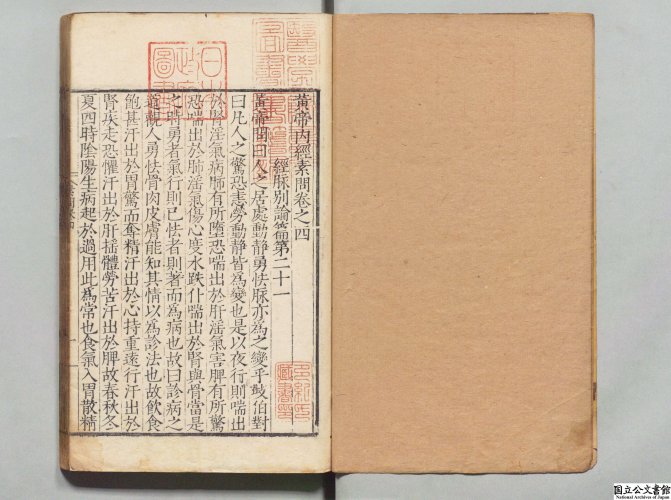 黃帝內經素問卷之四
經脉別論篇第二十一
黃帝問曰人之居處動靜勇怯脉亦爲之變乎歧伯對
曰凡人之驚恐恚勞動靜皆爲變也是以夜行則喘出
於腎淫氣病肺有所墮恐喘出於肝淫氣害脾有所驚
恐喘出於肺淫氣傷心度水跌仆喘出於腎與骨當是
之時勇者氣行則已怯者則著而爲病也故曰診病之
道觀人勇怯骨肉皮膚能知其情以爲診法也故飲食
飽甚汗出於胃驚而奪精汗出於心持重遠行汗出於
腎疾走恐懼汗出於肝搖體勞苦汗出於脾故春秋冬
夏四時陰陽生病起於過用此爲常也食氣入胃散精
日本
政府
圖書
国立公文書館
National Archives of Japan